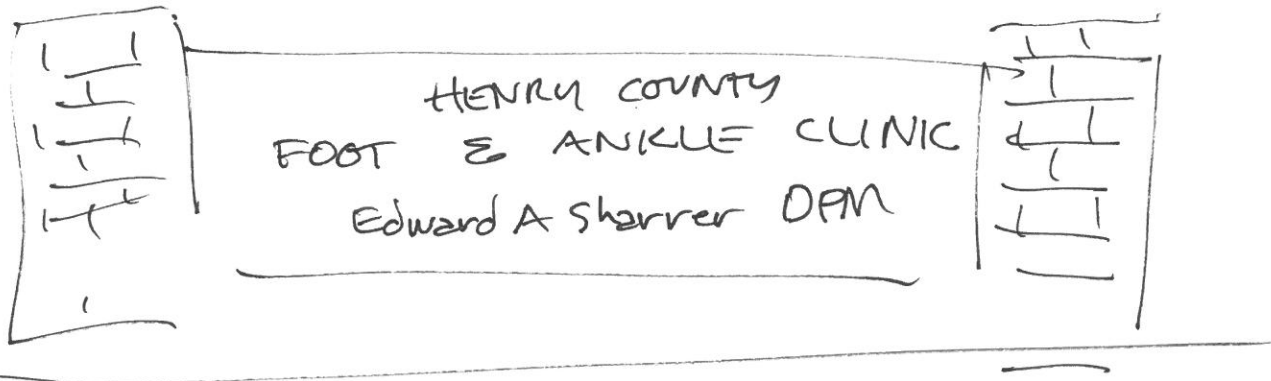 HENRY COUNTY
FOOT & ANKLE CLINIC
Edward A Sharrer DPM